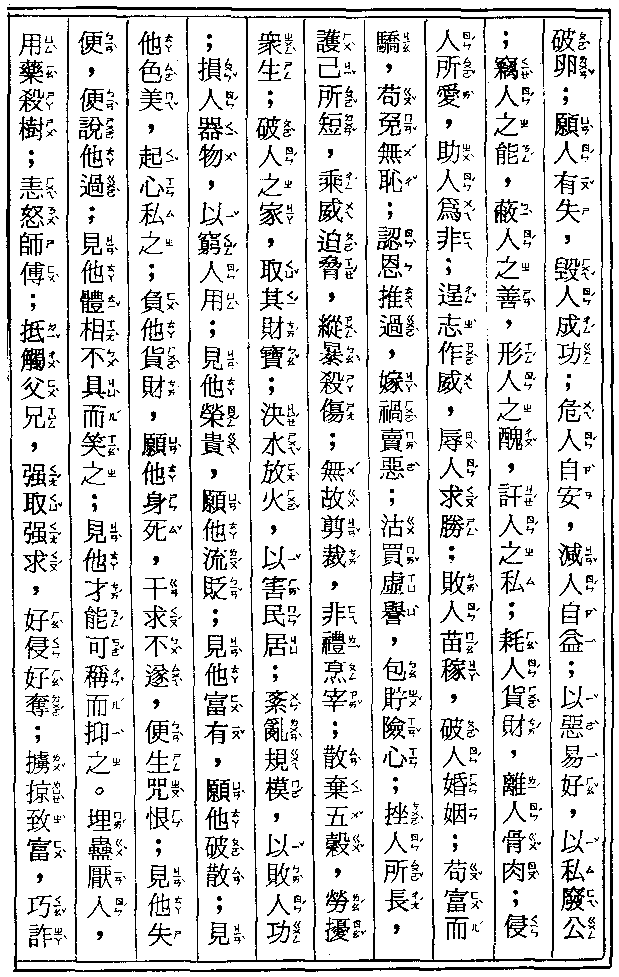 破卵；願人有失，毀人成功；危人自安，減人自益；以惡易好，以私廢公
；竊人之能，蔽人之善，形人之醜，訐人之私；耗人貨財，離人骨肉；侵
人所愛，助人爲非；逞志作威，辱人求勝；敗人苗稼，破人婚姻；苟富而
驕，苟免無恥；認恩推過，嫁禍賣惡；沽買虛譽，包貯險心；挫人所長，
護己所短，乘威迫脅，縱暴殺傷；無故剪裁，非禮烹宰；散棄五穀，勞擾
衆生；破人之家，取其財寶；決水放火，以害民居；紊亂規模，以敗人功
；損人器物，以窮人用；見他榮貴，願他流貶；見他富有，願他破散；見
他色美，起心私之；負他貨財，願他身死，干求不遂，便生咒恨；見他失
便，便說他過；見他體相不具而笑之；見他才能可稱而抑之。埋蠱厭人，
用藥殺樹；恚怒師傅；抵觸父兄，强取强求，好侵好奪；擄掠致富，巧詐